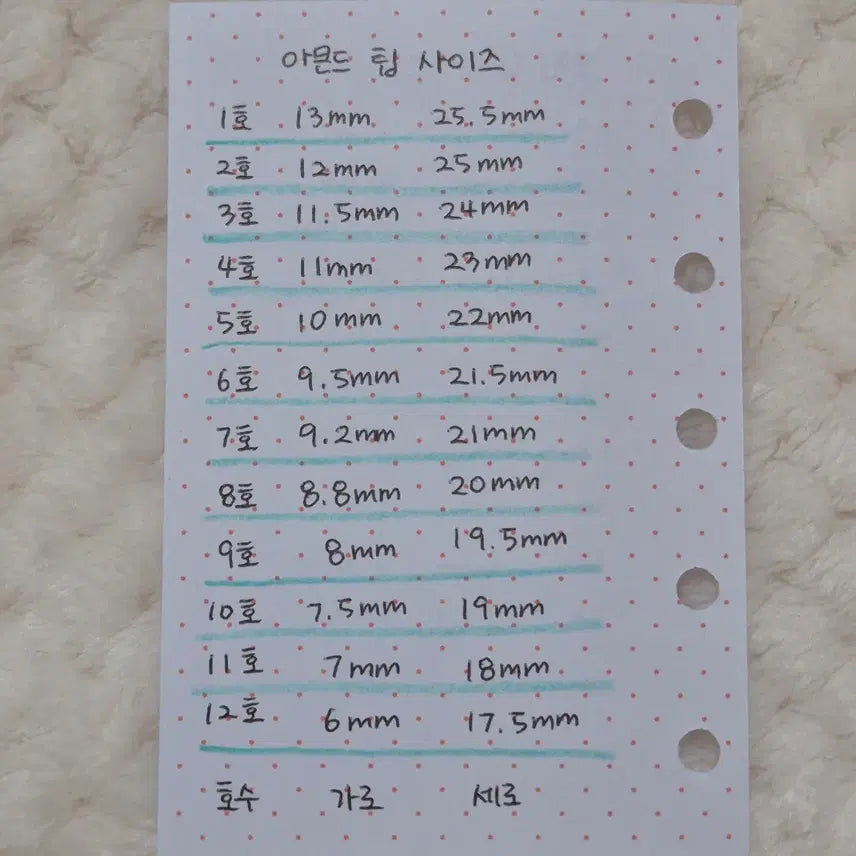 아몬드 팁 사이즈
1호 13mm 25.5mm
2호 12mm 25mm
3호 11.5mm 24mm
4호 11mm 23mm
5호 10mm 22mm
6호 9.5mm 21.5mm
7호 9.2mm 21mm
8호 8.8mm 20mm
9호 8mm 19.5mm
10호 7.5mm 19mm
11호 7mm 18mm
12호 6mm 17.5mm
호수 가로 세로